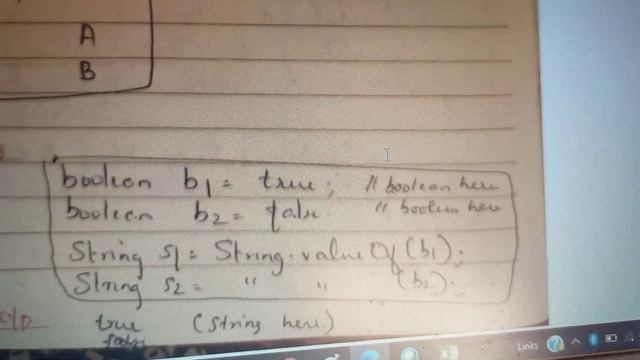 A
B
boolean b1 = true; // boolean here
boolean b2 = false // boolean here
String s1 = String.valueOf(b1);
String s2 = " " (b2).
O/P true (String here)
false
Links